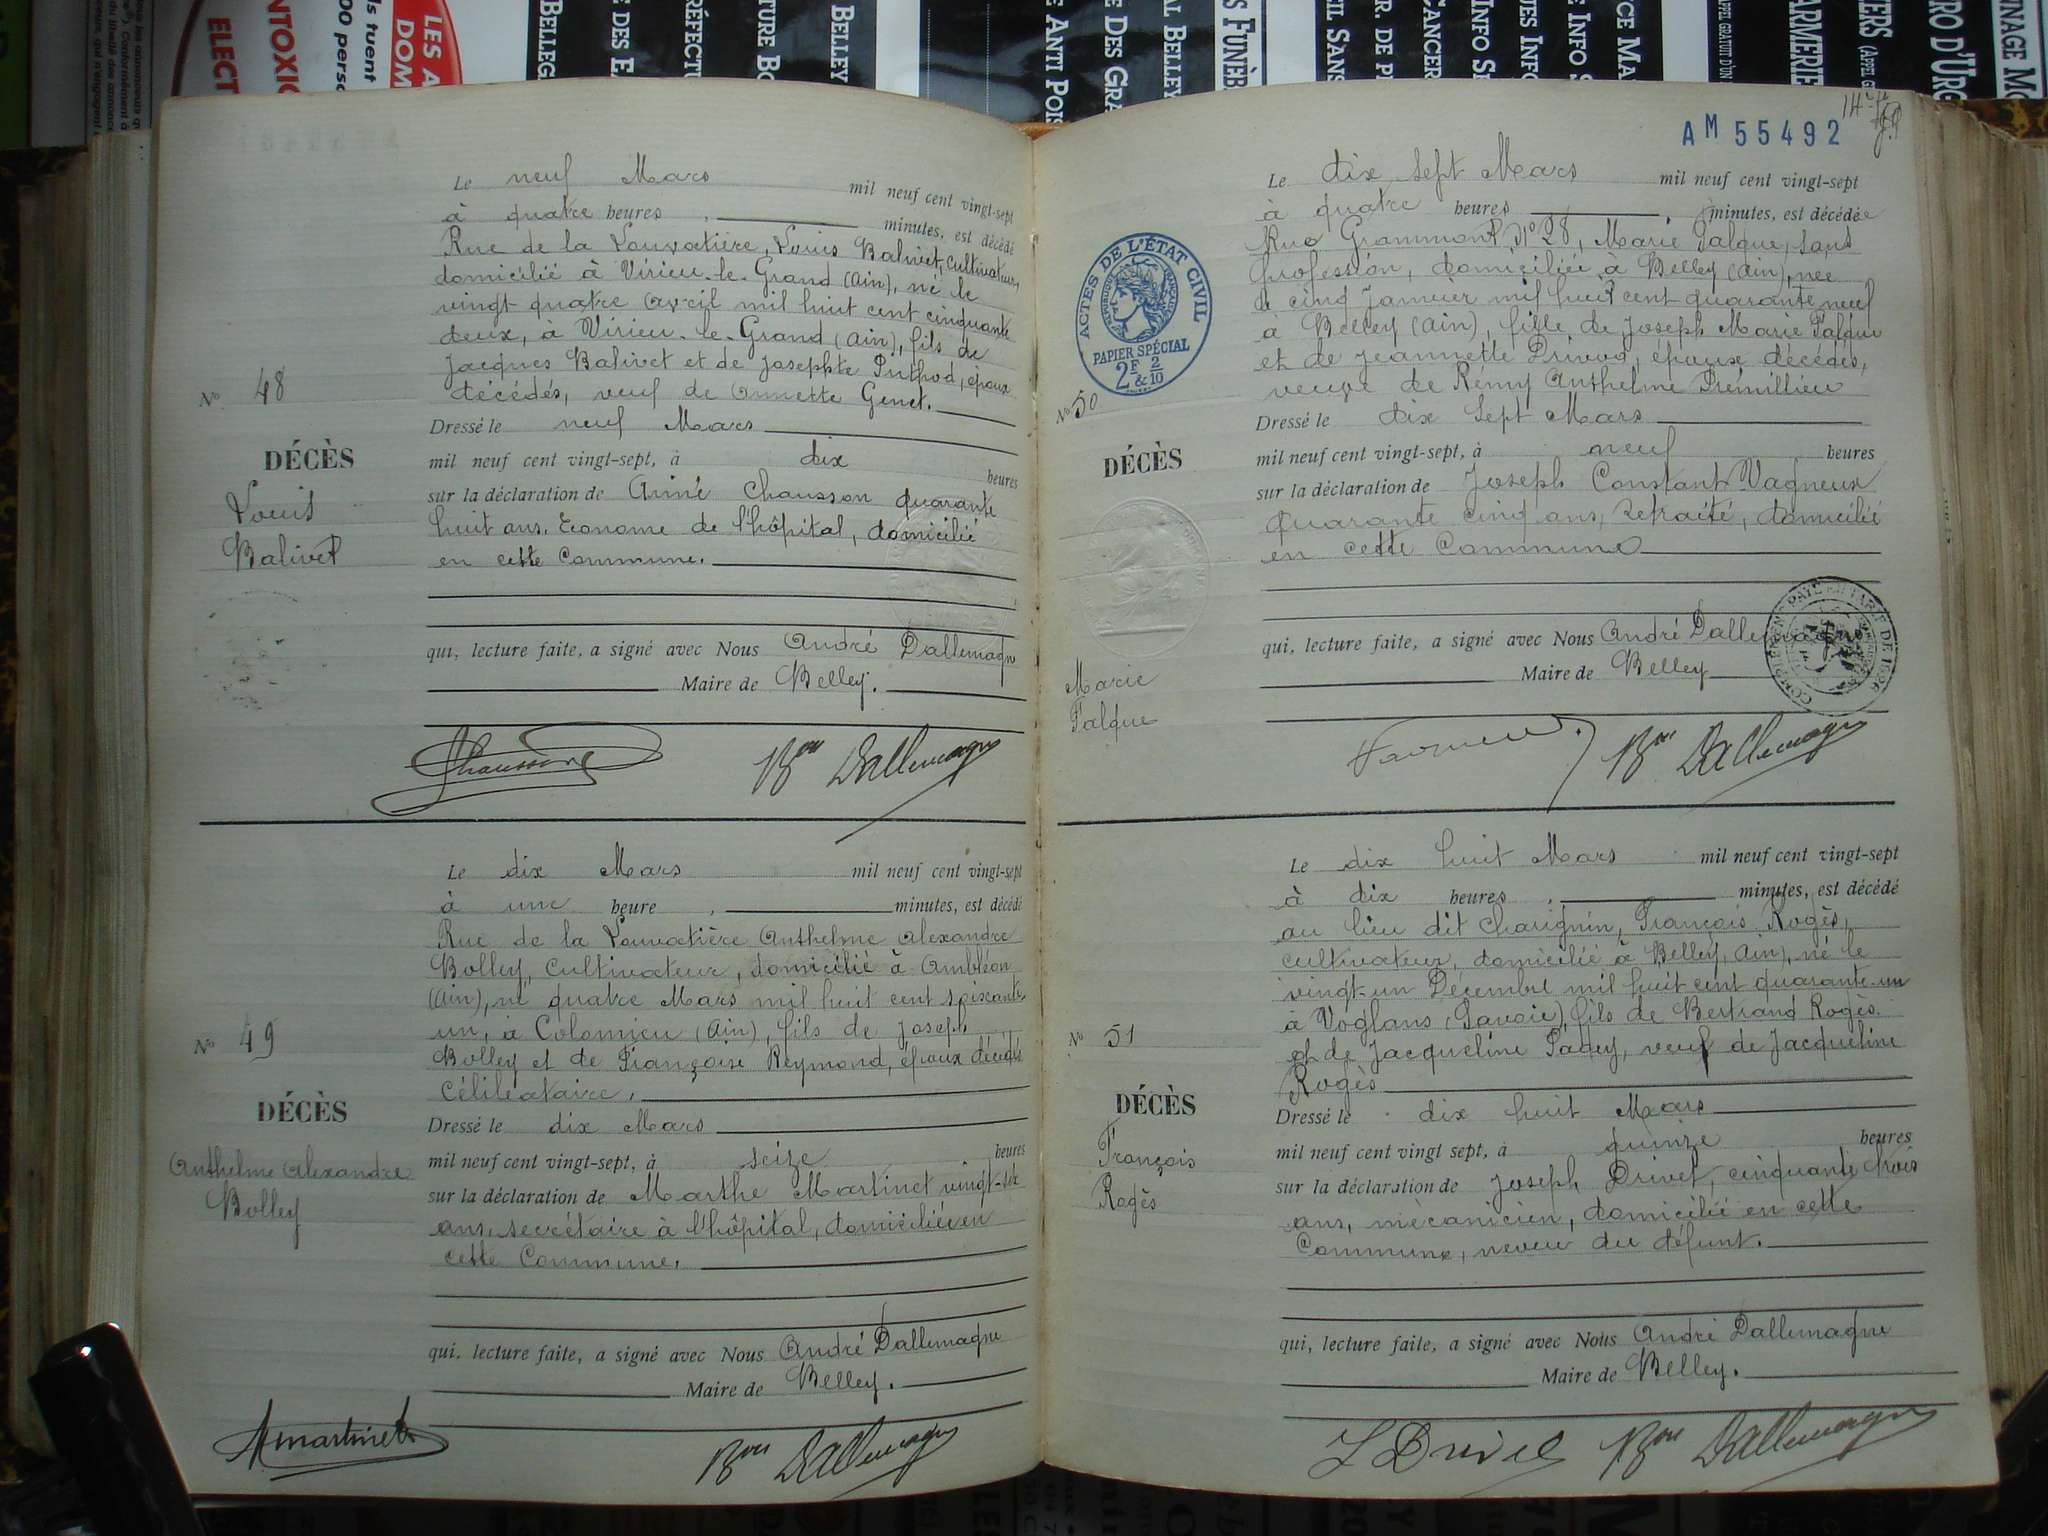 LES A
DOM
ls tuent
00 perso
NTOXIC
ELECT
BELLEG
E DES E
RÉFECTU
TURE BO
BELLEY
E ANTI POIS
E DES GRA
AL BELLEY
S FUNÈB
EIL SANS
R. DE P
CANCER
INFO S
UES INFO
E INFO S
ICE MA
ARMERIE
IERS (APPEL G
RO D'URG
NNAGE MO
AM 55492
Le neuf Mars mil neuf cent vingt-sept
à quatre heures, minutes, est décédé
Rue de la Louvatière, Louis Balivet, cultivateur,
domicilié à Virieu-le-Grand (Ain), né le
vingt quatre avril mil huit cent cinquante
deux, à Virieu-le-Grand (Ain), fils de
Jacques Balivet et de Josephte Puthod, époux
décédés, veuf de Annette Genet.
No 48
DÉCÈS
Louis
Balivet
Dressé le neuf Mars
mil neuf cent vingt-sept, à dix heures
sur la déclaration de Aimé Chausson quarante
huit ans, Econome de l'hôpital, domicilié
en cette Commune.
qui, lecture faite, a signé avec Nous André Dallemagne
Maire de Belley.
Chausson Bon Dallemagne
Le dix Mars mil neuf cent vingt-sept
à une heure, minutes, est décédé
Rue de la Louvatière Anthelme Alexandre
Bolley, Cultivateur, domicilié à Ambléon
(Ain), né quatre Mars mil huit cent soixante
un, à Colomieu (Ain), fils de Joseph
Bolley et de Françoise Reymond, époux décédés
Célibataire.
No 49
DÉCÈS
Anthelme Alexandre
Bolley
Dressé le dix Mars
mil neuf cent vingt-sept, à seize heures
sur la déclaration de Marthe Martinet vingt-six
ans, secrétaire à l'hôpital, domiciliée en
cette Commune.
qui, lecture faite, a signé avec Nous André Dallemagne
Maire de Belley.
Martinet Bon Dallemagne
Le dix sept Mars mil neuf cent vingt-sept
à quatre heures, minutes, est décédée
Rue Grammont No 28, Marie Falque, sans
profession, domiciliée à Belley (Ain), née
le cinq Janvier mil huit cent quarante neuf
à Belley (Ain), fille de Joseph Marie Falque
et de Jeannette Drivod, époux décédés,
veuve de Rémy Anthelme Prémillieu
ACTES DE L'ÉTAT CIVIL
RÉPUBLIQUE FRANÇAISE
PAPIER SPÉCIAL
2F & 2/10
No 50
DÉCÈS
Marie
Falque
Dressé le dix sept Mars
mil neuf cent vingt-sept, à neuf heures
sur la déclaration de Joseph Constant Vagneux
quarante cinq ans, retraité, domicilié
en cette Commune
qui, lecture faite, a signé avec Nous André Dallemagne
Maire de Belley
Bon Dallemagne
Le dix huit Mars mil neuf cent vingt-sept
à dix heures, minutes, est décédé
au lieu dit Charignin, François Rogès,
cultivateur, domicilié à Belley, Ain), né le
vingt-un Décembre mil huit cent quarante-un
à Voglans (Savoie), fils de Bertrand Rogès
et de Jacqueline Padey, veuf de Jacqueline
Rogès
No 51
DÉCÈS
François
Rogès
Dressé le dix huit Mars
mil neuf cent vingt sept, à quinze heures
sur la déclaration de Joseph Drivet, cinquante trois
ans, mécanicien, domicilié en cette
Commune, neveu du défunt.
qui, lecture faite, a signé avec Nous André Dallemagne
Maire de Belley.
J Drivet Bon Dallemagne